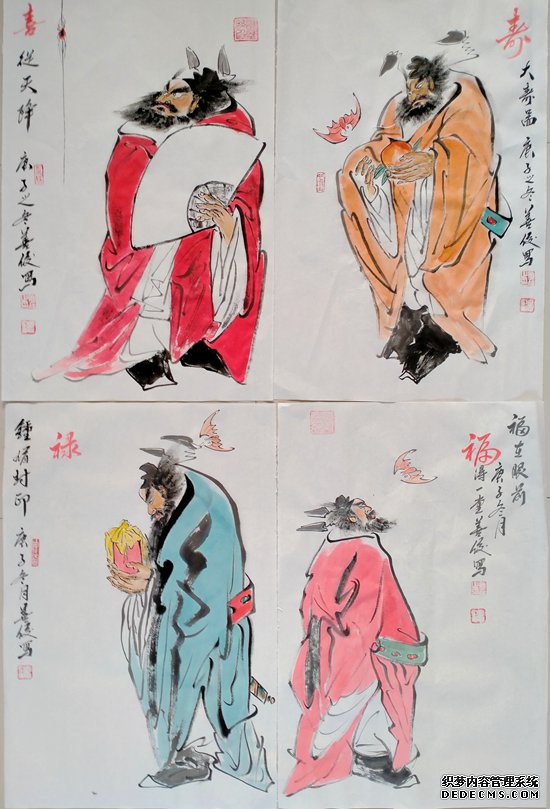 喜
從天降 庚子之冬善俊寫
寿
大寿啚 庚子之冬善俊寫
禄
鍾馗封印 庚子冬月善俊寫
福
福在眼前
庚子冬月
得一堂善俊寫
织梦内容管理系统
DEDECMS.COM